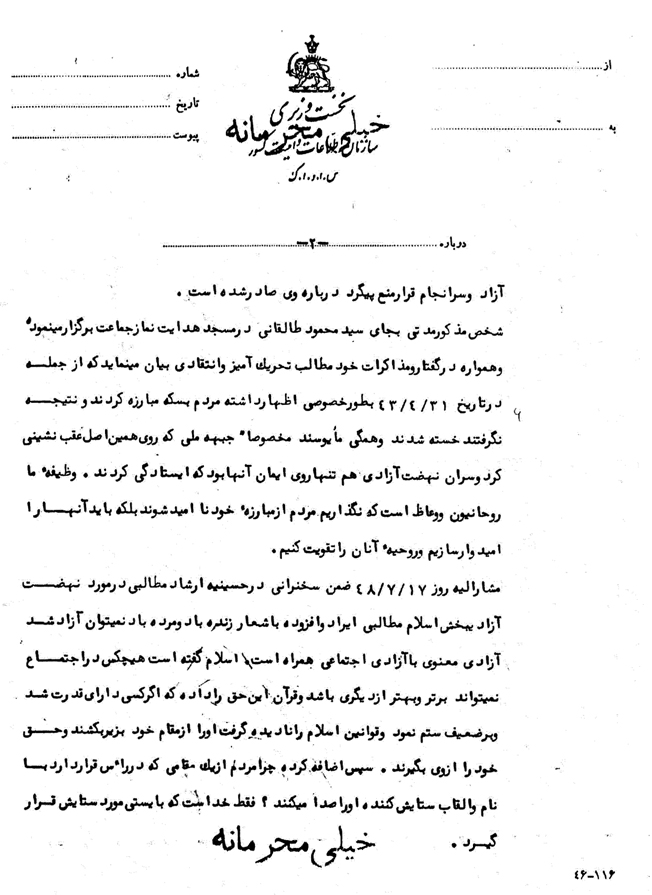 از
به
نخست وزیری
خیلی محرمانه
سازمان اطلاعات و امنیت کشور
س.ا.و.ا.ک
شماره
تاریخ
پیوست
درباره -۲-
آزاد وسرانجام قرارمنع پیگرد درباره وی صادرشده است .
شخص مذکورمدتی بجای سید محمود طالقانی درمسجد هدایت نمازجماعت برگزارمینموده
وهمواره درگفتارومذاکرات خود مطالب تحریک آمیز وانتقادی بیان مینماید که از جمله
درتاریخ ۴۳/۴/۳۱ بطورخصوصی اظهارداشته مردم بسکه مبارزه کردند و نتیجه
نگرفتند خسته شدند وهمگی مأیوسند مخصوصاً جبهه ملی که روی همین اصل عقب نشینی
کرد وسران نهضت آزادی هم تنهاروی ایمان آنها بود که ایستادگی کردند . وظیفه ما
روحانیون ووعاظ است که نگذاریم مردم ازمبارزه خود نا امید شوند بلکه باید آنها را
امیدوارسازیم وروحیه آنان را تقویت کنیم .
مشارالیه روز ۴۸/۷/۱۷ ضمن سخنرانی درحسینیه ارشاد مطالبی درمورد نهضت
آزاد یبخش اسلام مطالبی ایراد وافزوده باشعار زنده باد ومرده باد نمیتوان آزاد شد
آزادی معنوی باآزادی اجتماعی همراه است اسلام گفته است هیچکس دراجتماع
نمیتواند برتر وبهتر ازدیگری باشد وقرآن این حق راداده که اگرکسی دارای قدرت شد
وبرضعیف ستم نمود وقوانین اسلام رانادیده گرفت اورا ازمقام خود بزیربکشند وحق
خود را ازوی بگیرند . سپس اضافه کرده چرا مردم ازیک مقامی که درراس قراردارد با
نام والقاب ستایش کننده اورا صدا میکنند ؟ فقط خداست که بایستی مورد ستایش قرار
گیرد .
خیلی محرمانه
۴۶-۱۱۶